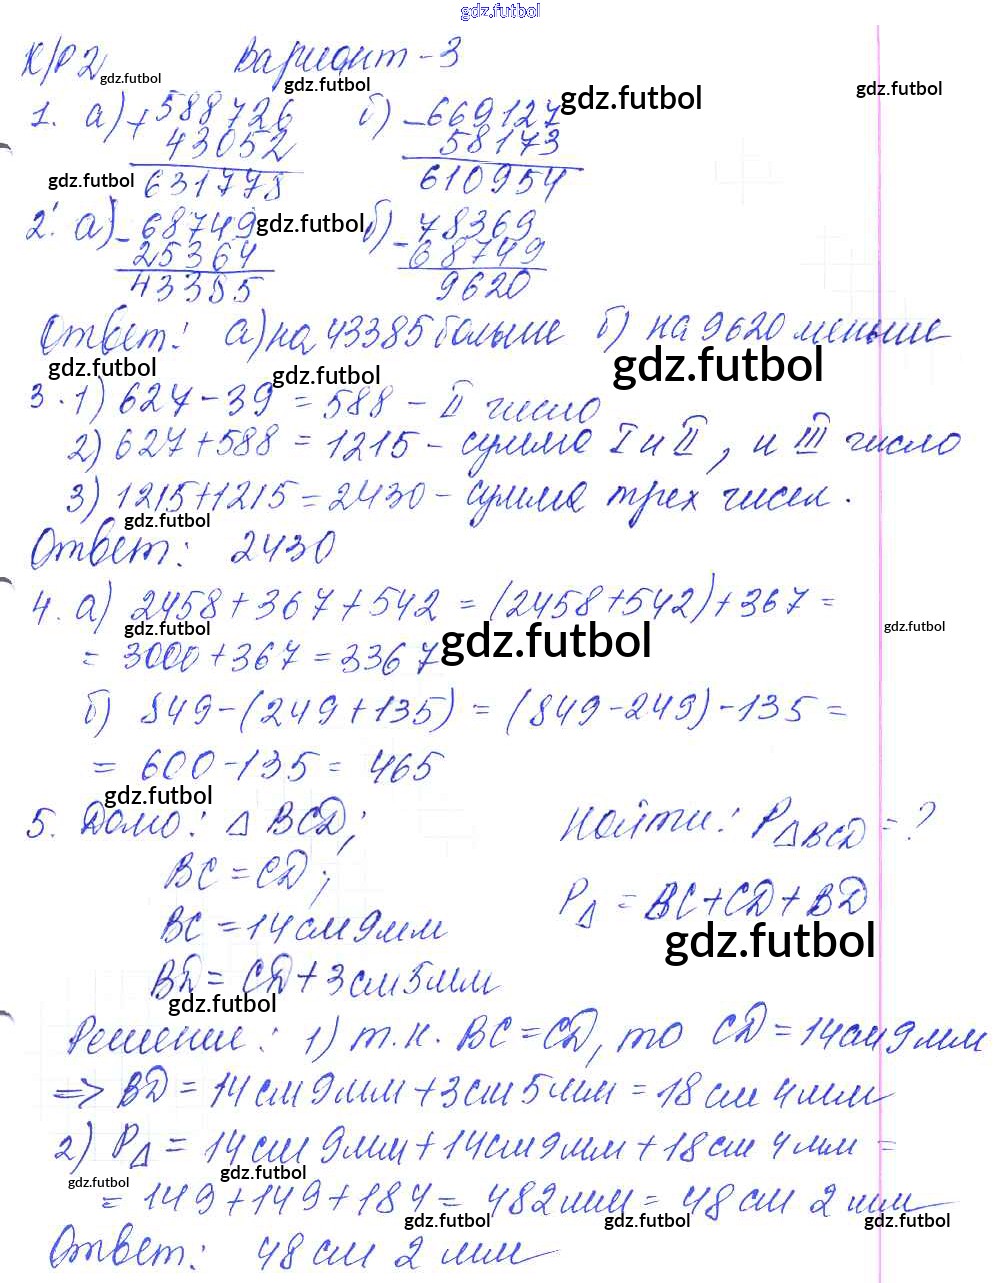 gdz.futbol
К/Р 2 Вариант-3
gdz.futbol gdz.futbol gdz.futbol gdz.futbol
1. а) + 588726 б) - 669127
43052 58173
gdz.futbol 631778 610954
2. а) - 68749 gdz.futbol б) - 78369
25364 68749
43385 9620
Ответ: а) на 43385 больше б) на 9620 меньше
gdz.futbol gdz.futbol gdz.futbol
3. 1) 627-39 = 588 - II число
2) 627+588 = 1215 - сумма I и II, и III число
3) 1215+1215 = 2430 - сумма трех чисел.
gdz.futbol
Ответ: 2430
4. а) 2458+367+542 = (2458+542)+367 =
gdz.futbol gdz.futbol gdz.futbol
= 3000+367 = 3367
б) 849-(249+135) = (849-249)-135 =
= 600-135 = 465
gdz.futbol
5. Дано: △ BCD; Найти: P△BCD = ?
BC = CD;
BC = 14см 9мм P△ = BC+CD+BD
gdz.futbol
BD = CD+3см 5мм
gdz.futbol
Решение: 1) т.к. BC = CD, то CD = 14см 9мм
=> BD = 14см 9мм + 3см 5мм = 18см 4мм
2) P△ = 14см 9мм + 14см 9мм + 18см 4мм =
gdz.futbol gdz.futbol
= 149+149+184 = 482мм = 48см 2мм
gdz.futbol gdz.futbol gdz.futbol
Ответ: 48см 2мм